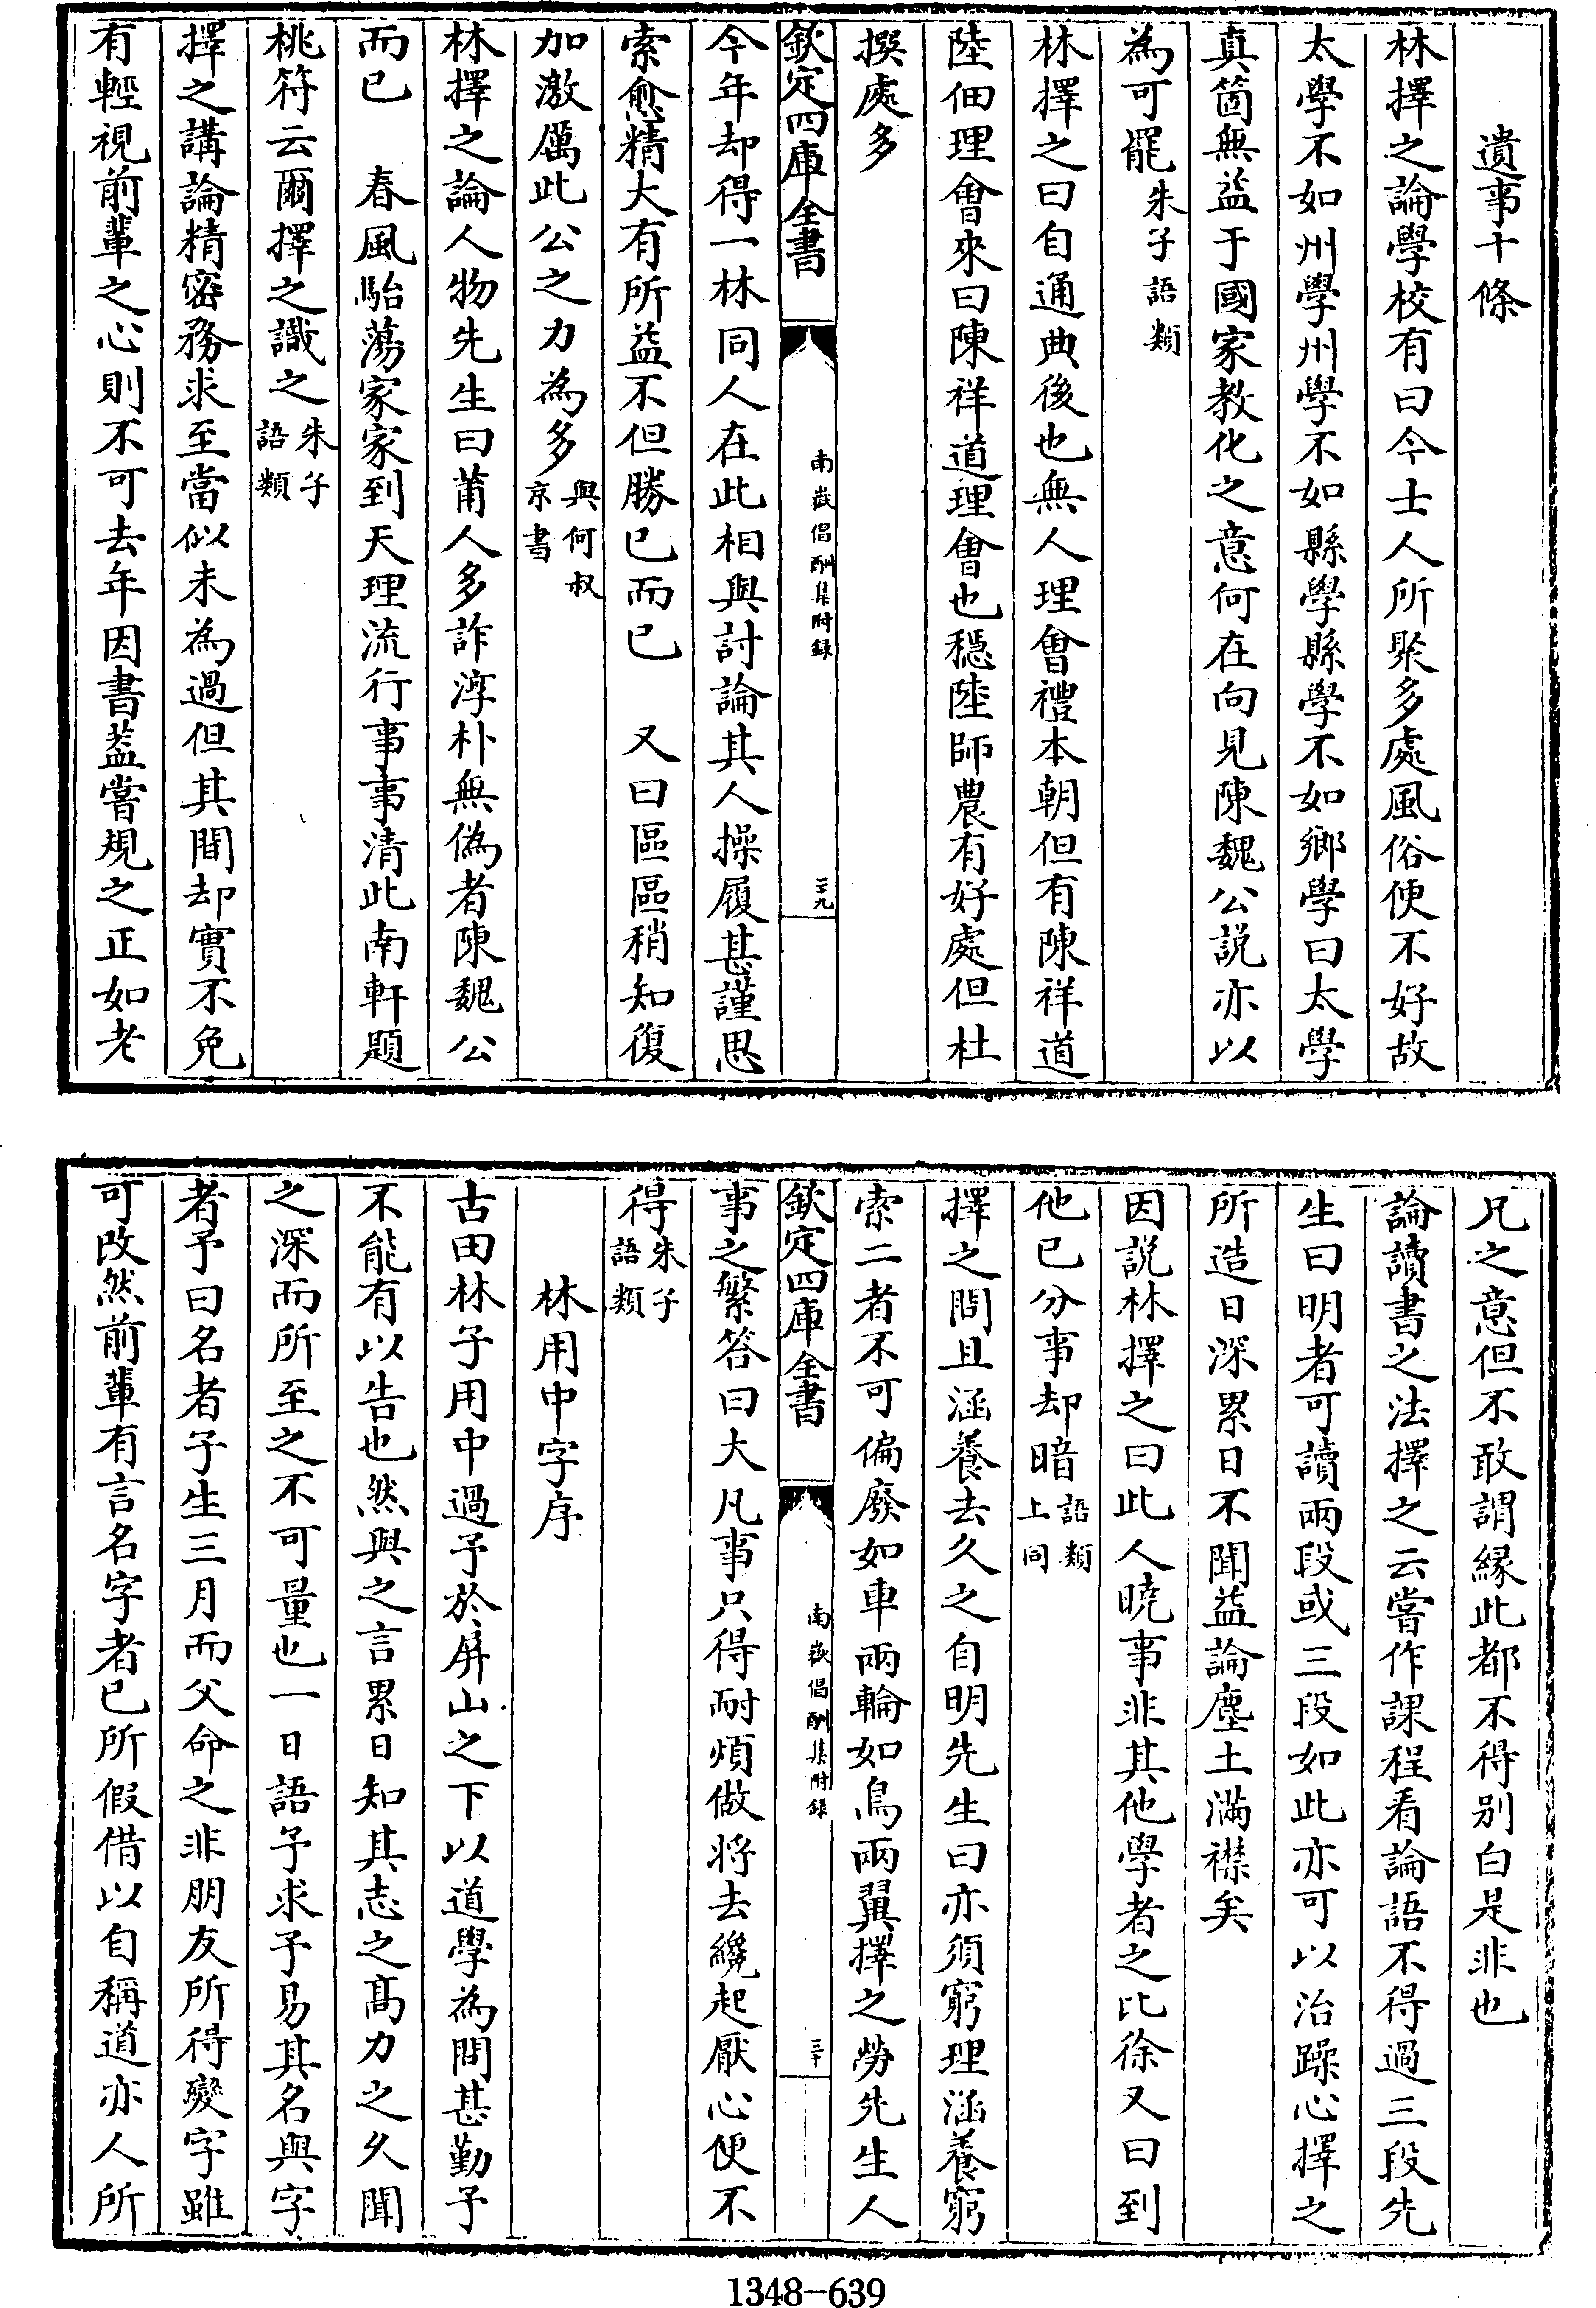 遺事十條
林擇之論學校有曰今士人所聚多處風俗便不好故
太學不如州學州學不如縣學縣學不如鄉學曰太學
真箇無益于國家教化之意何在向見陳魏公説亦以
為可罷朱子語類
林擇之曰自通典後也無人理會禮本朝但有陳祥道
陸佃理會來曰陳祥道理會也穏陸師農有好處但杜
撰處多
欽定四庫全書 南嶽倡酬集附録 二十九
今年却得一林同人在此相與討論其人操履甚謹思
索愈精大有所益不但勝己而已 又曰區區稍知復
加激厲此公之力為多與何叔京書
林擇之論人物先生曰莆人多詐淳朴無偽者陳魏公
而已 春風駘蕩家家到天理流行事事清此南軒題
桃符云爾擇之識之朱子語類
擇之講論精宻務求至當似未為過但其間却實不免
有輕視前輩之心則不可去年因書葢嘗規之正如老
凡之意但不敢謂緣此都不得别白是非也
論讀書之法擇之云嘗作課程看論語不得過三段先
生曰明者可讀兩段或三段如此亦可以治躁心擇之
所造日深累日不聞益論塵土滿襟矣
因説林擇之曰此人曉事非其他學者之比徐又曰到
他已分事却暗語類上同
擇之問且涵養去久之自明先生曰亦須窮理涵養窮
索二者不可偏廢如車兩輪如鳥兩翼擇之勞先生人
欽定四庫全書 南嶽倡酬集附録 三十
事之繁答曰大凡事只得耐煩做將去纔起厭心便不
得朱子語類
林用中字序
古田林子用中過予於屏山之下以道學為問甚勤予
不能有以告也然與之言累日知其志之髙力之久聞
之深而所至之不可量也一日語予求予易其名與字
者予曰名者子生三月而父命之非朋友所得變字雖
可改然前輩有言名字者已所假借以自稱道亦人所
1348-639